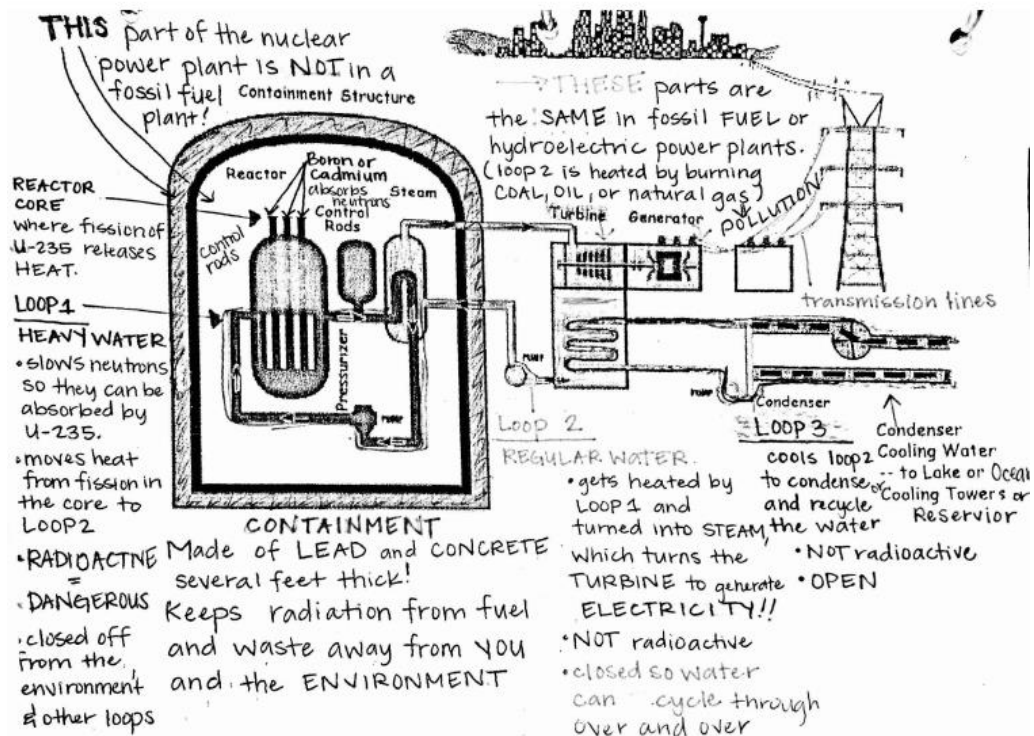 THIS part of the nuclear
power plant is NOT in a
fossil fuel
plant!
Containment Structure
THESE parts are
the SAME in fossil FUEL or
hydroelectric power plants.
(loop 2 is heated by burning
COAL, OIL, or natural gas)
POLLUTION
Reactor
Boron or
Cadmium
absorbs
neutrons
Control
Rods
Steam
control
rods
Pressurizer
PUMP
REACTOR
CORE
where fission of
U-235 releases
HEAT.
LOOP 1
HEAVY WATER
•slows neutrons
so they can be
absorbed by
U-235.
•moves heat
from fission in
the core to
LOOP2
•RADIOACTIVE
=
DANGEROUS
•closed off
from the
environment
& other loops
CONTAINMENT
Made of LEAD and CONCRETE
several feet thick!
Keeps radiation from fuel
and waste away from YOU
and the ENVIRONMENT
Turbine
Generator
transmission lines
PUMP
LOOP 2
REGULAR WATER
•gets heated by
LOOP 1 and
turned into STEAM,
which turns the
TURBINE to generate
ELECTRICITY!!
•NOT radioactive
•closed so water
can cycle through
over and over
PUMP
Condenser
LOOP 3
cools loop2
to condense
and recycle
the water
•NOT radioactive
•OPEN
Condenser
Cooling Water
-- to Lake or Ocean
or Cooling Towers or
Reservior